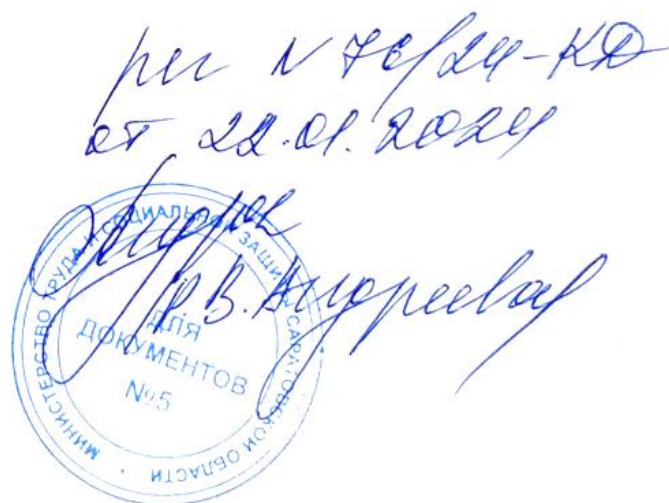 рег N 76/24-КД
от 22.01.2024
В. Андреева
МИНИСТЕРСТВО ТРУДА И СОЦИАЛЬНОЙ ЗАЩИТЫ САРАТОВСКОЙ ОБЛАСТИ
ДЛЯ
ДОКУМЕНТОВ
№5